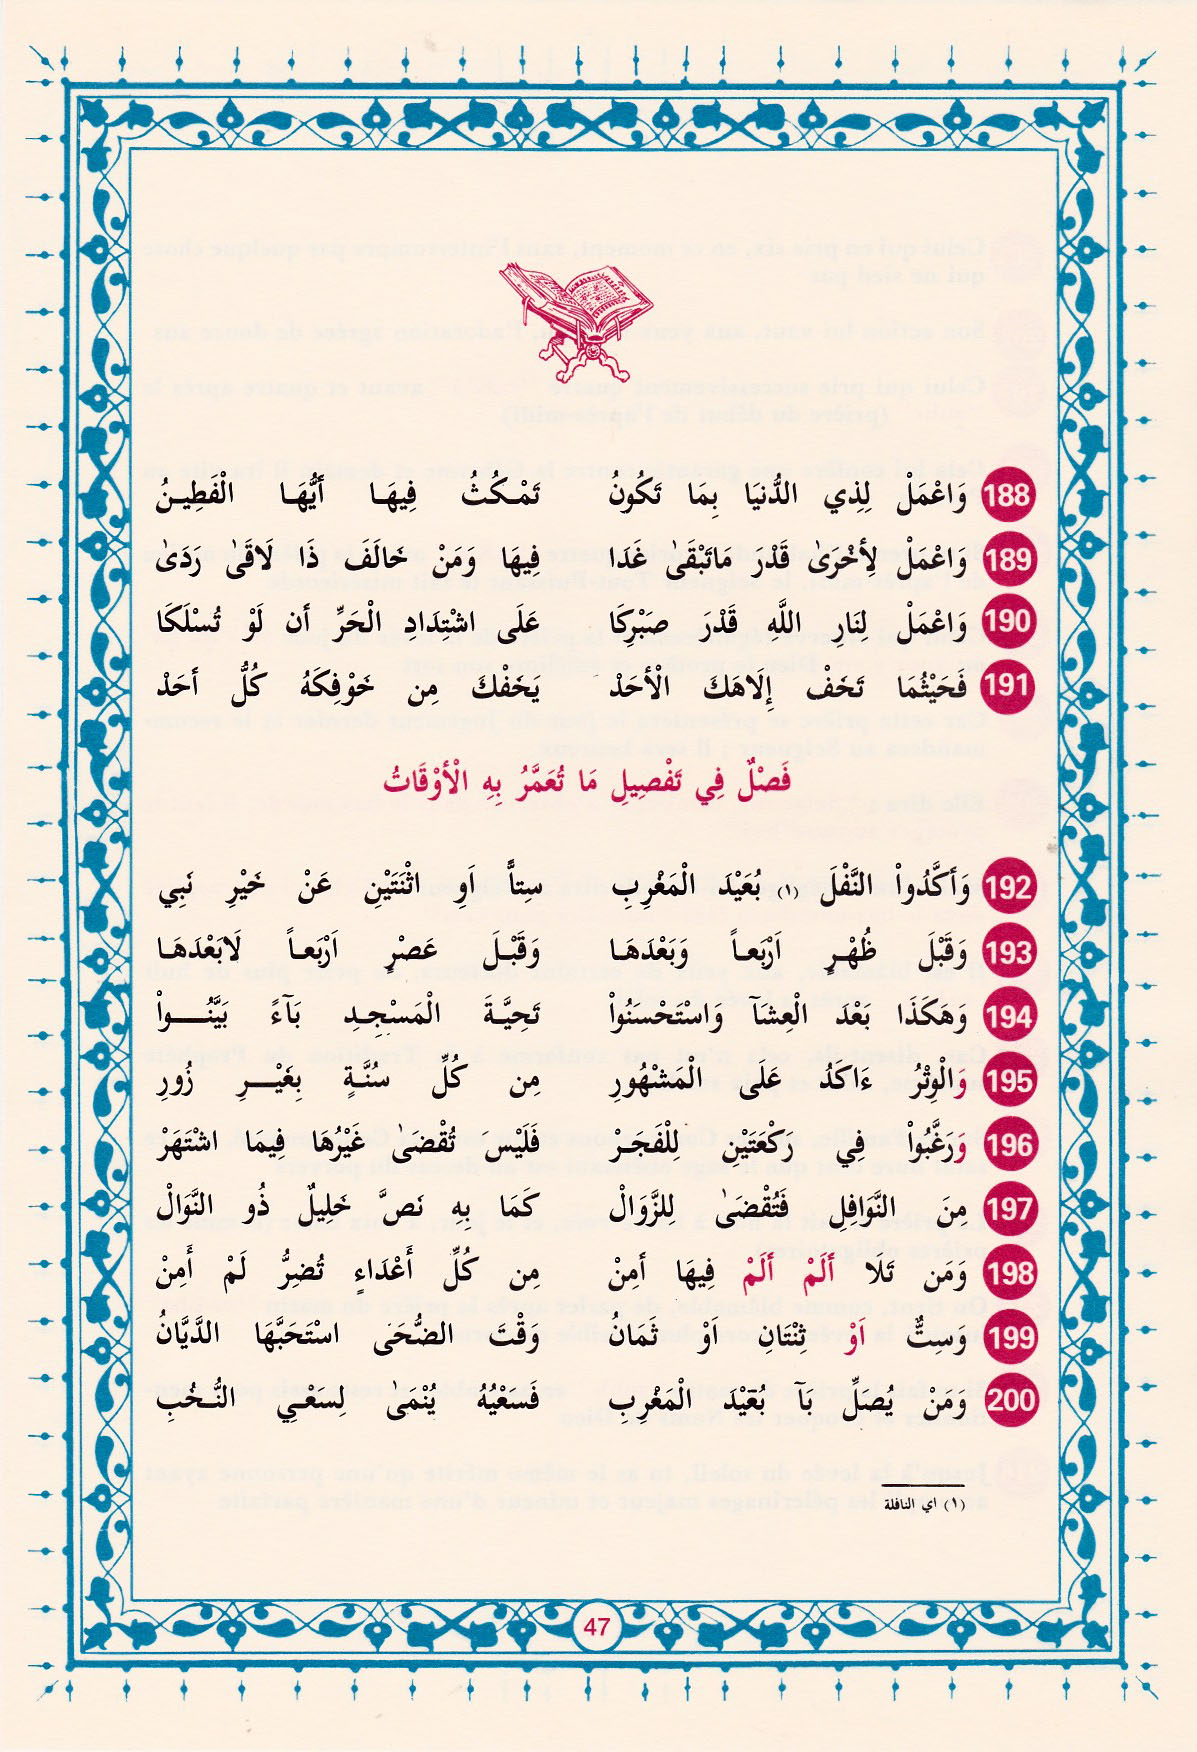 188 وَاعْمَلْ لِذِي الدُّنيَا بِمَا تَكُونُ تَمْكُثُ فِيهَا أَيُّهَا الْفَطِينُ
189 وَاعْمَلْ لِأخْرَىٰ قَدْرَ مَاتَبْقَىٰ غَدَا فِيهَا وَمَنْ خَالَفَ ذَا لَاقَىٰ رَدَىٰ
190 وَاعْمَلْ لِنَارِ اللَّهِ قَدْرَ صَبْرِكَا عَلَى اشْتِدَادِ الْحَرِّ أن لَوْ تُسْلَكَا
191 فَحَيْثُمَا تَخَفْ إِلَاهَكَ الْأحَدْ يَخَفْكَ مِن خَوْفِكَهُ كُلُّ أحَدْ
فَصْلٌ فِي تَفْصِيلِ مَا تُعَمَّرُ بِهِ الْأوْقَاتُ
192 وَأكَّدُواْ النَّفْلَ (١) بُعَيْدَ الْمَغْرِبِ سِتاًّ اَوِ اثْنَتَيْنِ عَنْ خَيْرِ نَبِي
193 وَقَبْلَ ظُهْرٍ اَرْبَعاً وَبَعْدَهَا وَقَبْلَ عَصْرٍ اَرْبَعاً لَابَعْدَهَا
194 وَهَكَذَا بَعْدَ الْعِشَآ وَاسْتَحْسَنُواْ تَحِيَّةَ الْمَسْجِدِ بَآءً بَيَّنُواْ
195 وَالْوِتْرُ ءَاكَدُ عَلَى الْمَشْهُورِ مِن كُلِّ سُنَّةٍ بِغَيْرِ زُورِ
196 وَرَغَّبُواْ فِي رَكْعَتَيْنِ لِلْفَجَرْ فَلَيْسَ تُقْضَىٰ غَيْرُهَا فِيمَا اشْتَهَرْ
197 مِنَ النَّوَافِلِ فَتُقْضَىٰ لِلزَّوَالْ كَمَا بِهِ نَصَّ خَلِيلٌ ذُو النَّوَالْ
198 وَمَن تَلَا أَلَمْ أَلَمْ فِيهَا أمِنْ مِن كُلِّ أَعْدَاءٍ تُضِرُّ لَمْ أَمِنْ
199 وَسِتٌّ اَوْ ثِنْتَانِ اَوْ ثَمَانُ وَقْتَ الضُّحَىٰ اسْتَحَبَّهَا الدَّيَّانُ
200 وَمَنْ يُصَلِّ بَآ بُعَيْدَ الْمَغْرِبِ فَسَعْيُهُ يُنْمَىٰ لِسَعْيِ النُّخُبِ
(١) اي النافلة
47